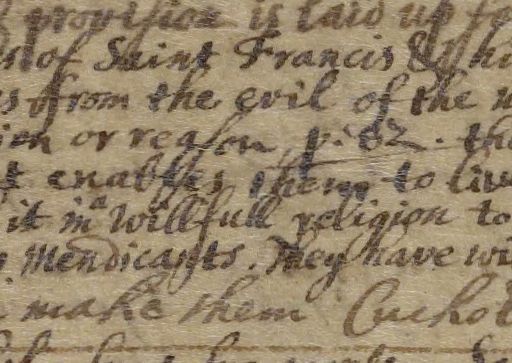 provision is laid up fo
of Saint Francis &
from the evil of the
ion or reason, p. 82. the
t enables them to live
it in a willfull religion to
Mendicants. They have wi
make them Cuckol